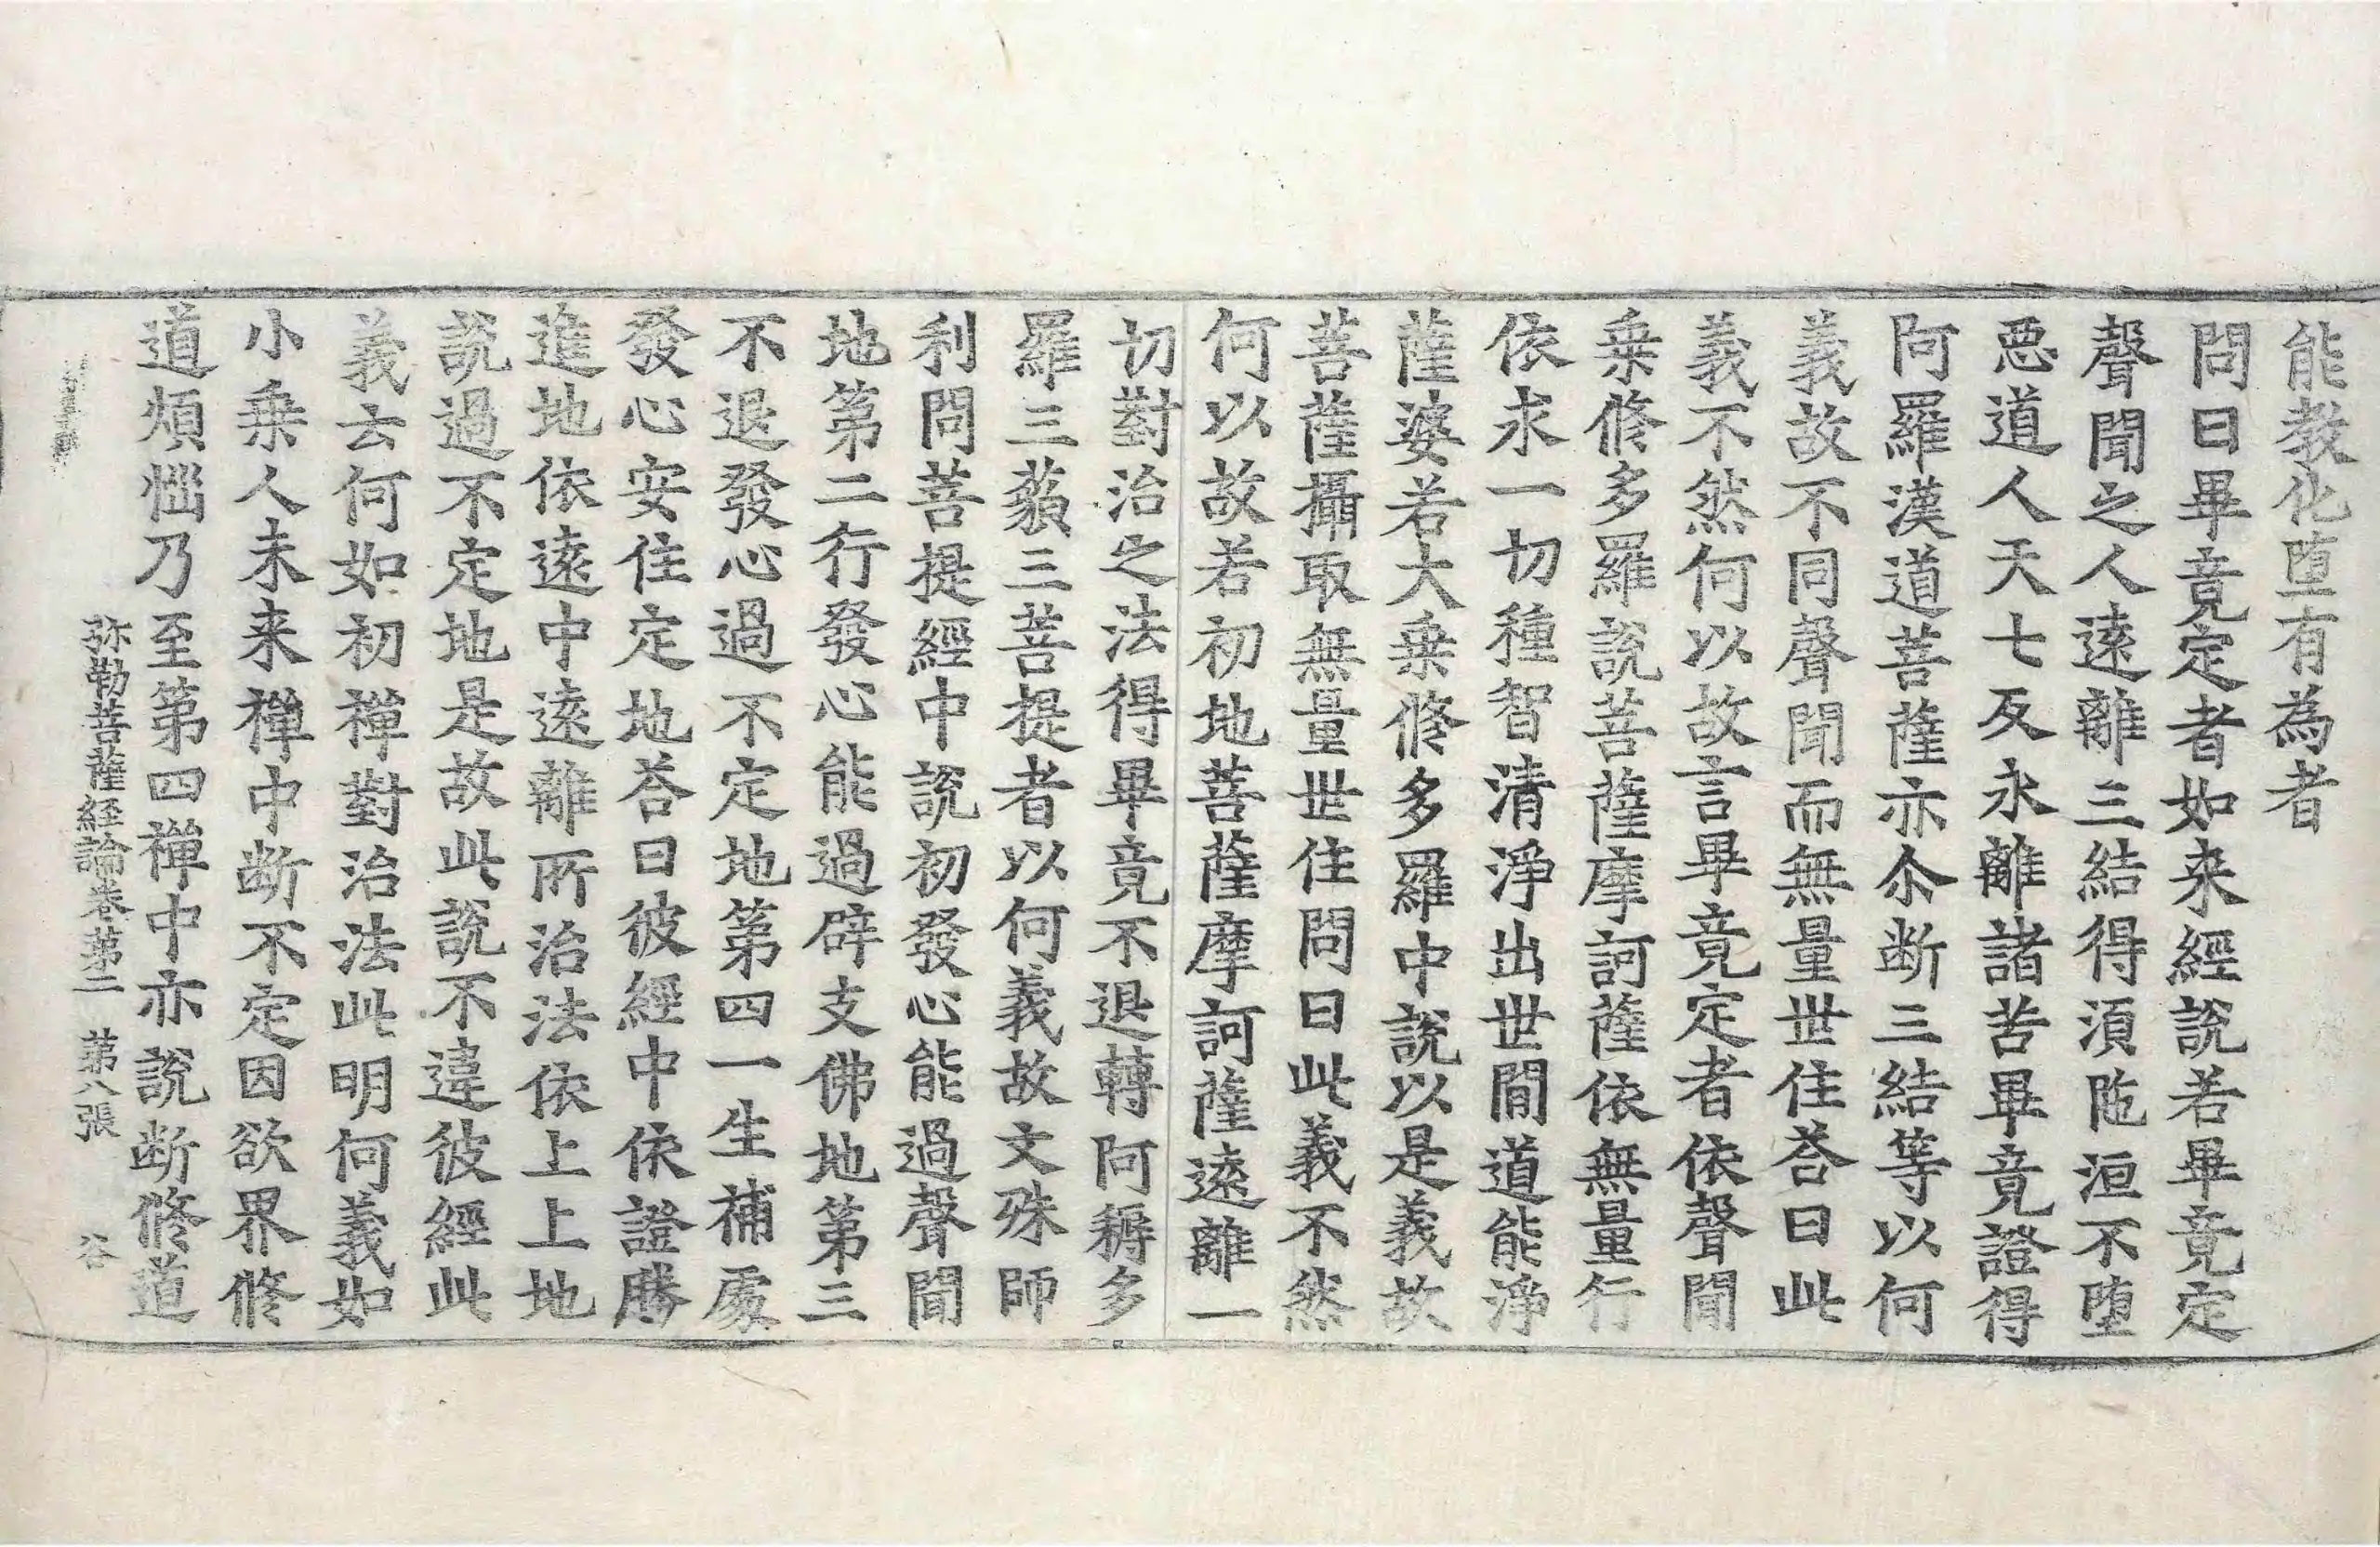 能教化堕有為者
問曰畢竟定者如来經說若畢竟定
聲聞之人逺離三結得湏陁洹不堕
惡道人天七反永離諸苦畢竟證得
阿羅漢道菩薩亦尒断三結等以何
義故不同聲聞而無量世住荅曰此
義不然何以故言畢竟定者依聲聞
乗修多羅說菩薩摩訶薩依無量行
依求一切種智清淨出世間道能淨
薩婆若大乗修多羅中說以是義故
菩薩攝取無量世住問曰此義不然
何以故若初地菩薩摩訶薩逺離一
切對治之法得畢竟不退轉阿耨多
羅三藐三菩提者以何義故文殊師
利問菩提經中說初發心能過聲聞
地第二行發心能過辟支佛地第三
不退發心過不定地第四一生補處
發心安住定地荅曰彼經中依證勝
進地依逺中逺離所治法依上上地
說過不定地是故此說不違彼經此
義云何如初禪對治法此明何義如
小乗人未来禪中断不定因欲界修
道煩惱乃至第四禪中亦說断修道
弥勒菩薩経論卷第二 第八張 谷